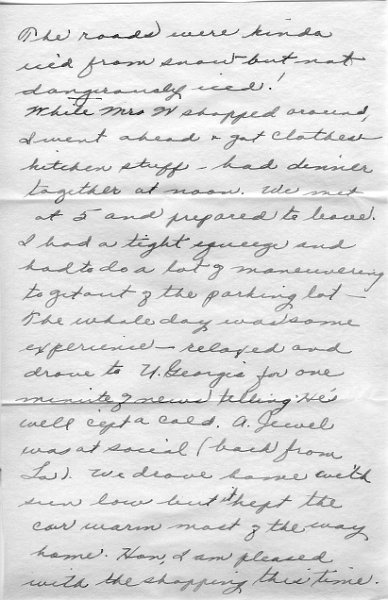 The roads were kinda
iced from snow but not
dangerously iced!
While Mrs W shopped around,
I went ahead & got clothes
kitchen stuff - had dinner
together at noon. We met
at 5 and prepared to leave.
I had a tight squeeze and
had to do a lot of maneuvering
to get out of the parking lot -
The whole day was some
experience - relaxed and
drove to U. Georgia for one
minite of news telling. He's
well cept a cold. A. Jewel
was at social (back from
La). We drove home with
sun low but it kept the
car warm most of the way
home. Hon, I am pleased
with the shopping this time.